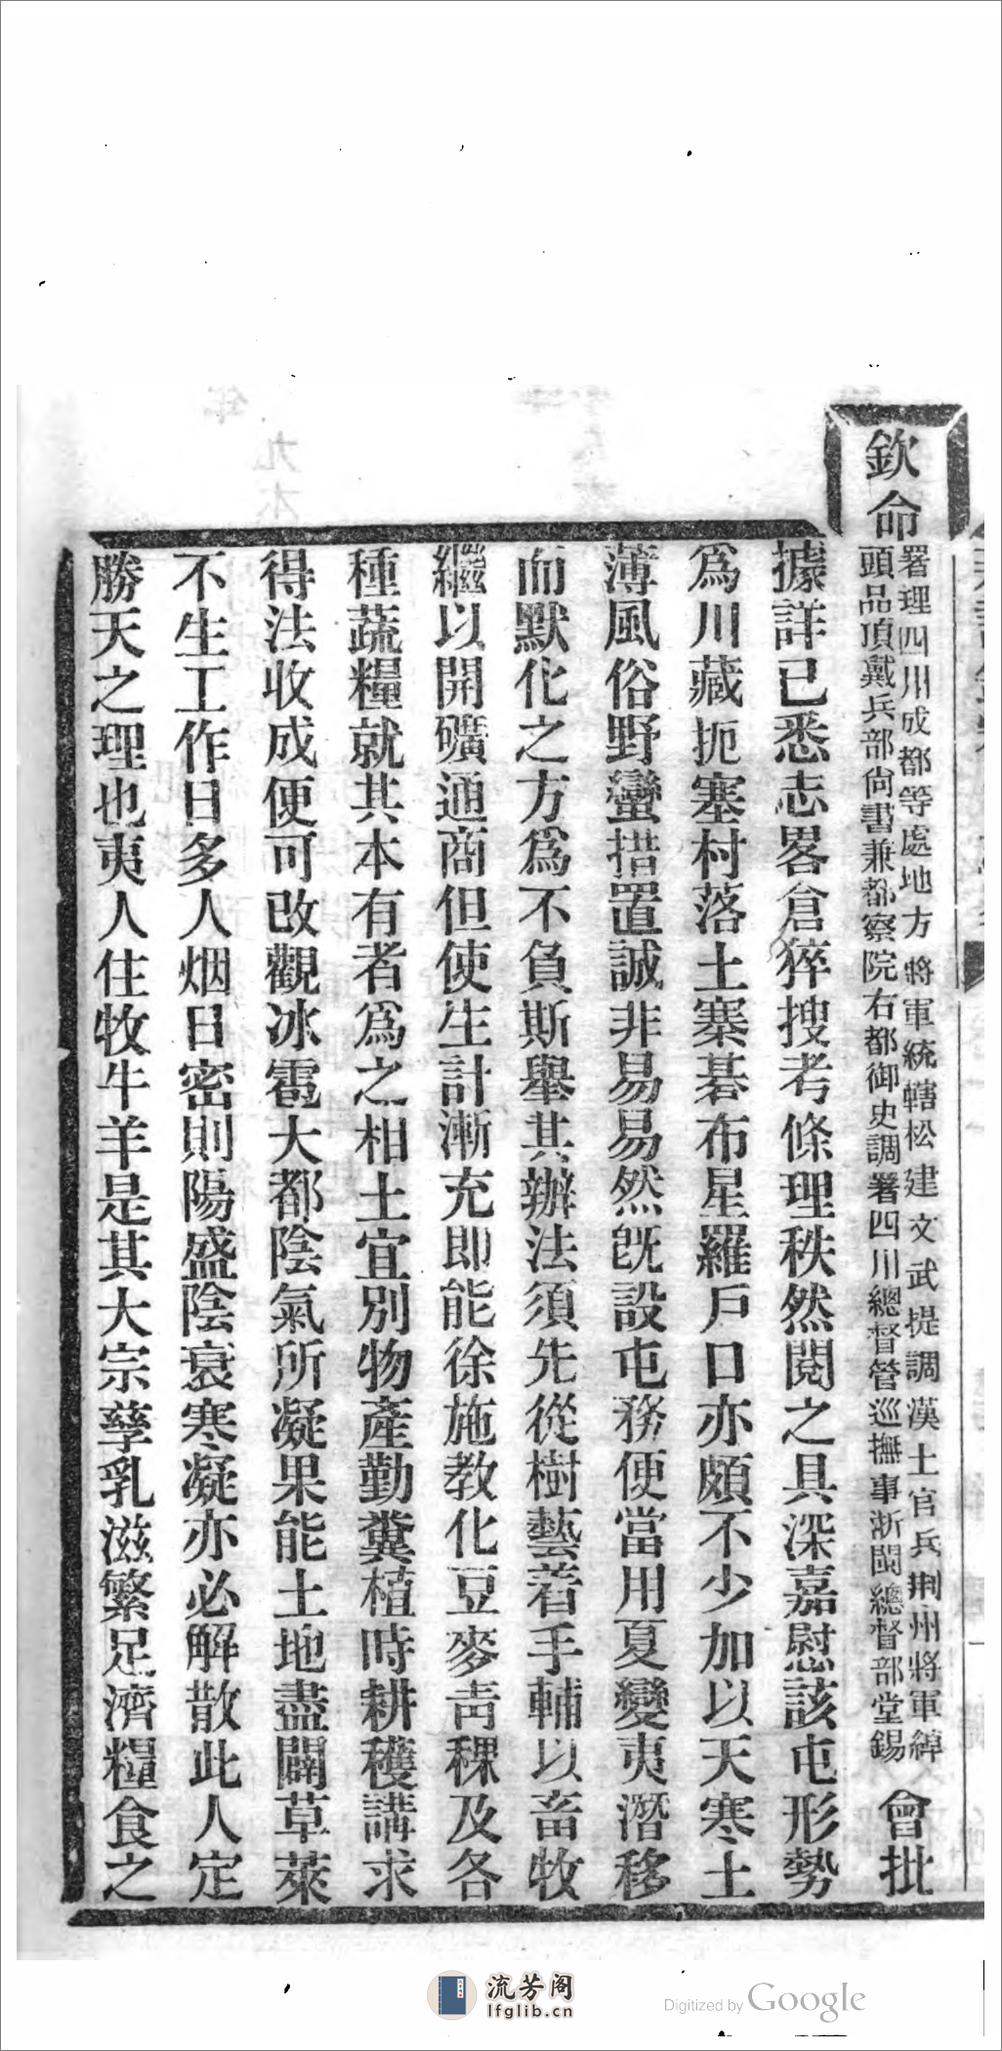 欽命
署理四川成都等處地方將軍統轄松建文武提調漢土官兵荆州將軍綽
頭品頂戴兵部尙書兼都察院右都御史調署四川總督管巡撫事浙閩總督部堂錫
會批
據詳已悉志畧倉猝搜考條理秩然閱之具深嘉慰該屯形勢
爲川藏扼塞村落土寨碁布星羅戶口亦頗不少加以天寒土
薄風俗野蠻措置誠非易易然旣設屯務便當用夏變夷潛移
而默化之方爲不負斯舉其辦法須先從樹藝着手輔以畜牧
繼以開礦通商但使生計漸充即能徐施教化豆麥靑稞及各
種蔬糧就其本有者爲之相土宜別物產勤糞植時耕穫講求
得法收成便可改觀冰雹大都陰氣所凝果能土地盡闢草萊
不生工作日多人烟日密則陽盛陰衰寒凝亦必解散此人定
勝天之理也夷人住牧牛羊是其大宗孳乳滋繁足濟糧食之
流芳阁
lfglib.cn
Digitized by Google